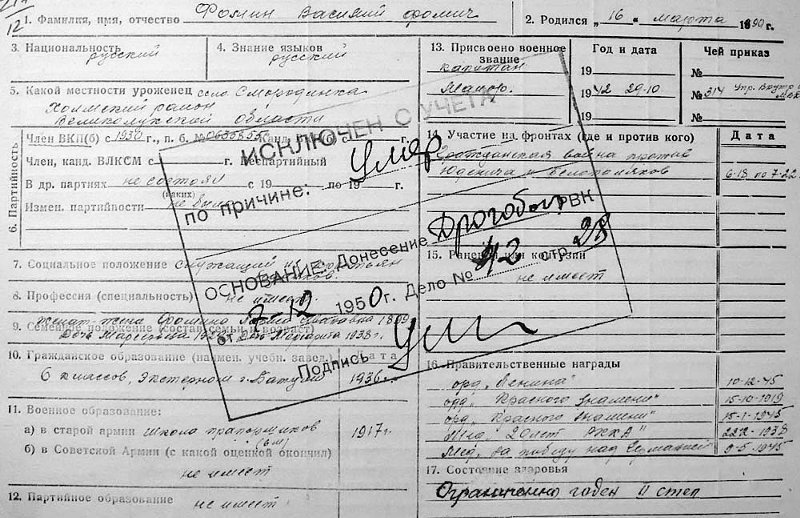 12
1. Фамилия, имя, отчество Фомин Василий Фомич
2. Родился „16“ марта 1890 г.
3. Национальность русский
4. Знание языков русский
5. Какой местности уроженец село Смородинка
Холмский район
Великолукской области
6. Партийность
Член ВКП(б) с 1930 г., п. б. №
Член, канд. ВЛКСМ с г. Беспартийный
В др. партиях не состоял с 19 по 19 г.
(каких)
Измен. партийности не было
7. Социальное положение служащий из крестьян
8. Профессия (специальность) не имеет.
9. Семейное положение (состав семьи и возраст)
женат - жена Фомина
10. Гражданское образование (наимен. учебн. завед.) Дата
6 классов, экстерном г. Батуми 1936 г.
11. Военное образование:
а) в старой армии школа прапорщиков 1917 г.
б) в Советской Армии (с какой оценкой окончил)
не имеет
12. Партийное образование не имеет
13. Присвоено военное звание
Год и дата
Чей приказ
капитан 19 №
майор 1942 29.10 № 314
19 №
14. Участие на фронтах (где и против кого) Дата
Гражданская война против
Юденича и белополяков 6-18 по 7-22
15. Ранения или контузии
не имеет
16. Правительственные награды
орд. „Ленина“ 10-12-45
орд. „Красного знамени“ 15-10-1919
орд. „Красного знамени“ 15-1-1945
Мед. „20 лет РККА“ 22.2-1938
Мед. „За победу над Германией“ 9-5-1945
17. Состояние здоровья
Ограниченно годен II степ
ИСКЛЮЧЕН С УЧЕТА
по причине: Умер
ОСНОВАНИЕ: Донесение РВК
от 7-12 1950 г. Дело № 42 стр. 28
Подпись